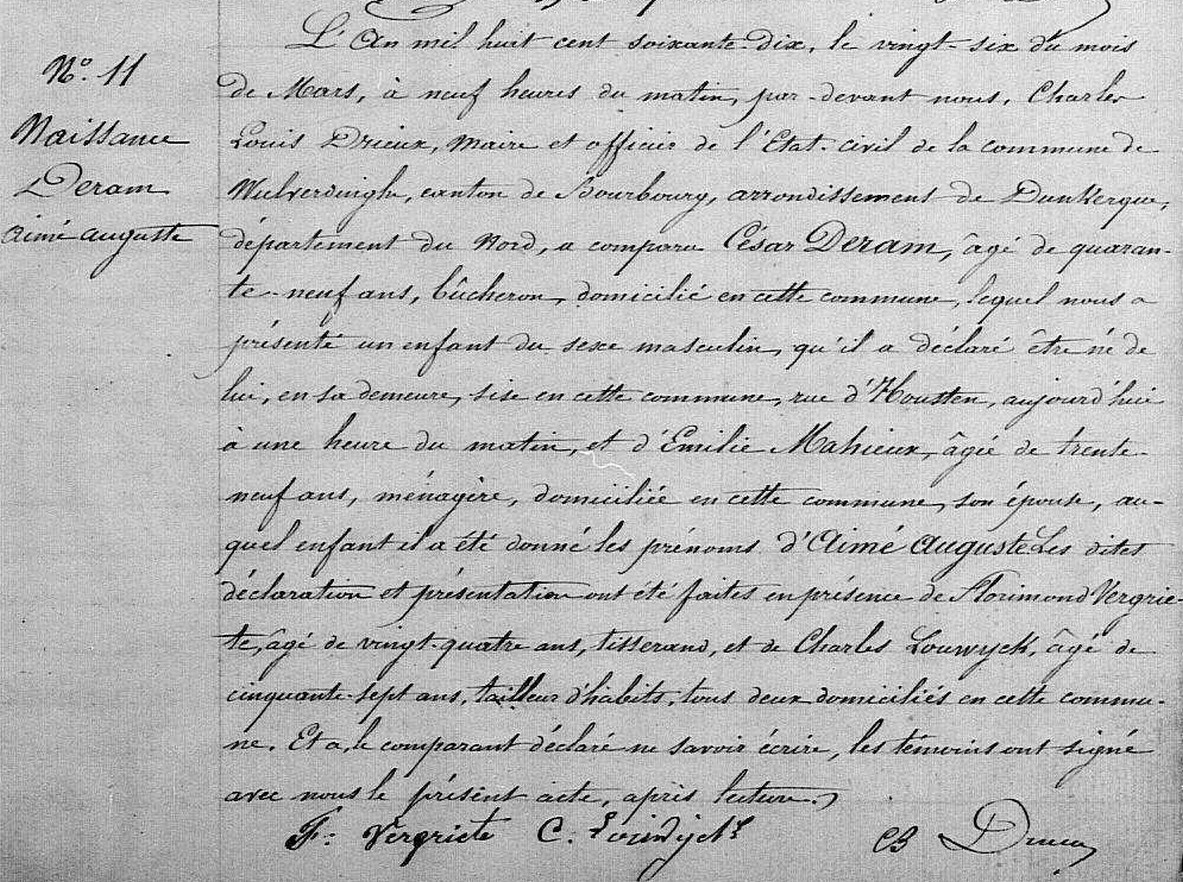 N.º 11
Naissance
Deram
Aimé Auguste
L'An mil huit cent soixante-dix, le vingt-six du mois
de Mars, à neuf heures du matin, par-devant nous, Charles
Louis Drieux, Maire et officier de l'Etat-civil de la commune de
Wulverdinghe, canton de Bourbourg, arrondissement de Dunkerque,
département du Nord, a comparu César Deram, âgé de quaran-
te-neuf ans, bûcheron, domicilié en cette commune, lequel nous a
présenté un enfant du sexe masculin, qu'il a déclaré être né de
lui, en sa demeure, sise en cette commune, rue d'Housten, aujourd'hui
à une heure du matin, et d'Emilie Mahieux, âgée de trente-
neuf ans, ménagère, domiciliée en cette commune, son épouse, au-
quel enfant il a été donné les prénoms d'Aimé Auguste Les dites
déclaration et présentation ont été faites en présence de Florimond Vergrie-
te, âgé de vingt-quatre ans, tisserand, et de Charles Louwyck, âgé de
cinquante-sept ans, tailleur d'habits, tous deux domiciliés en cette commu-
ne. Et a, le comparant déclaré ne savoir écrire, les témoins ont signé
avec nous le présent acte, après lecture.
F: Vergriete C.